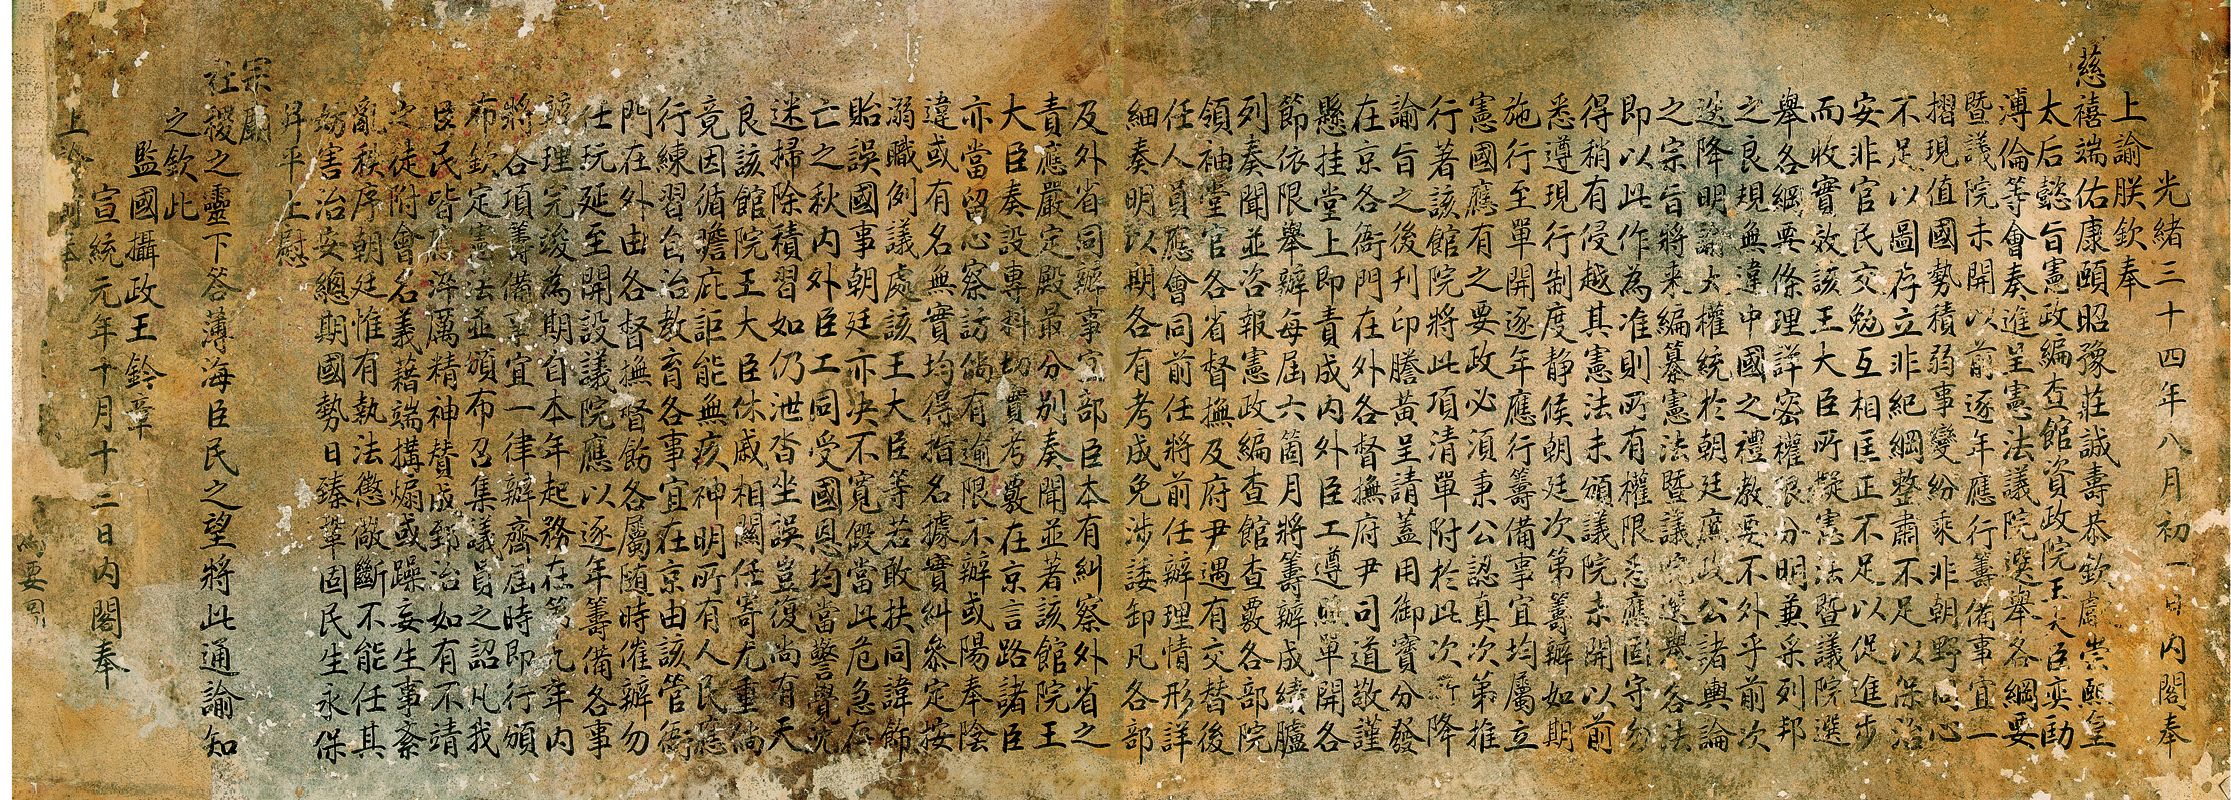 光緒三十四年八月初一日內閣奉
上諭朕欽奉
慈禧端佑康頤昭豫莊誠壽恭欽獻崇熙皇
太后懿旨憲政編查館資政院王大臣奕劻
溥倫等會奏進呈憲法議院選舉各綱要
暨議院未開以前逐年應行籌備事宜一
摺現值國勢積弱事變紛乘非朝野同心
不足以圖存立非紀綱整肅不足以保治
安非官民交勉互相匡正不足以促進步
而收實效該王大臣所擬憲法暨議院選
舉各綱要條理詳密權限分明兼采列邦
之良規無違中國之禮教要不外乎前次
迭降明諭大權統於朝廷庶政公諸輿論
之宗旨將來編纂憲法暨議院選舉各法
即以此作為准則所有權限悉應固守勿
得稍有侵越其憲法未頒議院未開以前
悉遵現行制度静候朝廷次第籌辦如期
施行至單開逐年應行籌備事宜均屬立
憲國應有之要政必須秉公認真次第推
行著該館院將此項清單附於此次所降
諭旨之後刊印謄黃呈請蓋用御寶分發
在京各衙門在外各督撫府尹司道敬謹
懸挂堂上即責成內外臣工遵照單開各
節依限舉辦每屆六箇月將籌辦成績臚
列奏聞並咨報憲政編查館查覈各部院
領袖堂官各省督撫及府尹遇有交替後
任人員應會同前任將前任辦理情形詳
細奏明以期各有考成免涉諉卸凡各部
及外省同辦事宜部臣本有糾察外省之
責應嚴定殿最分别奏聞並著該館院王
大臣奏設專科切實考覈在京言路諸臣
亦當留心察訪倘有逾限不辦或陽奉陰
違或有名無實均得指名據實糾參定按
溺職例議處該王大臣等若敢扶同諱飾
貽誤國事朝廷亦決不寬假當此危急存
亡之秋內外臣工同受國恩均當警覺沉
迷掃除積習如仍泄沓坐誤豈復尚有天
良該館院王大臣休戚相關任寄尤重倘
竟因循瞻庇詎能無疚神明所有人民應
行練習自治教育各事宜在京由該管衙
門在外由各督撫督飭各屬随時催辦勿
任玩延至開設議院應以逐年籌備各事
辦理完竣為期自本年起務在第九年內
將各項籌備事宜一律辦齊屆時即行頒
布欽定憲法並頒布召集議員之詔凡我
臣民皆應淬厲精神贊成郅治如有不靖
之徒附會名義藉端搆煽或躁妄生事紊
亂秩序朝廷惟有執法懲儆斷不能任其
妨害治安總期國勢日臻鞏固民生永保
昇平上慰
宗廟
社稷之靈下答薄海臣民之望將此通諭知
之欽此
監國攝政王鈐章
宣統元年十月十二日內閣奉
上諭